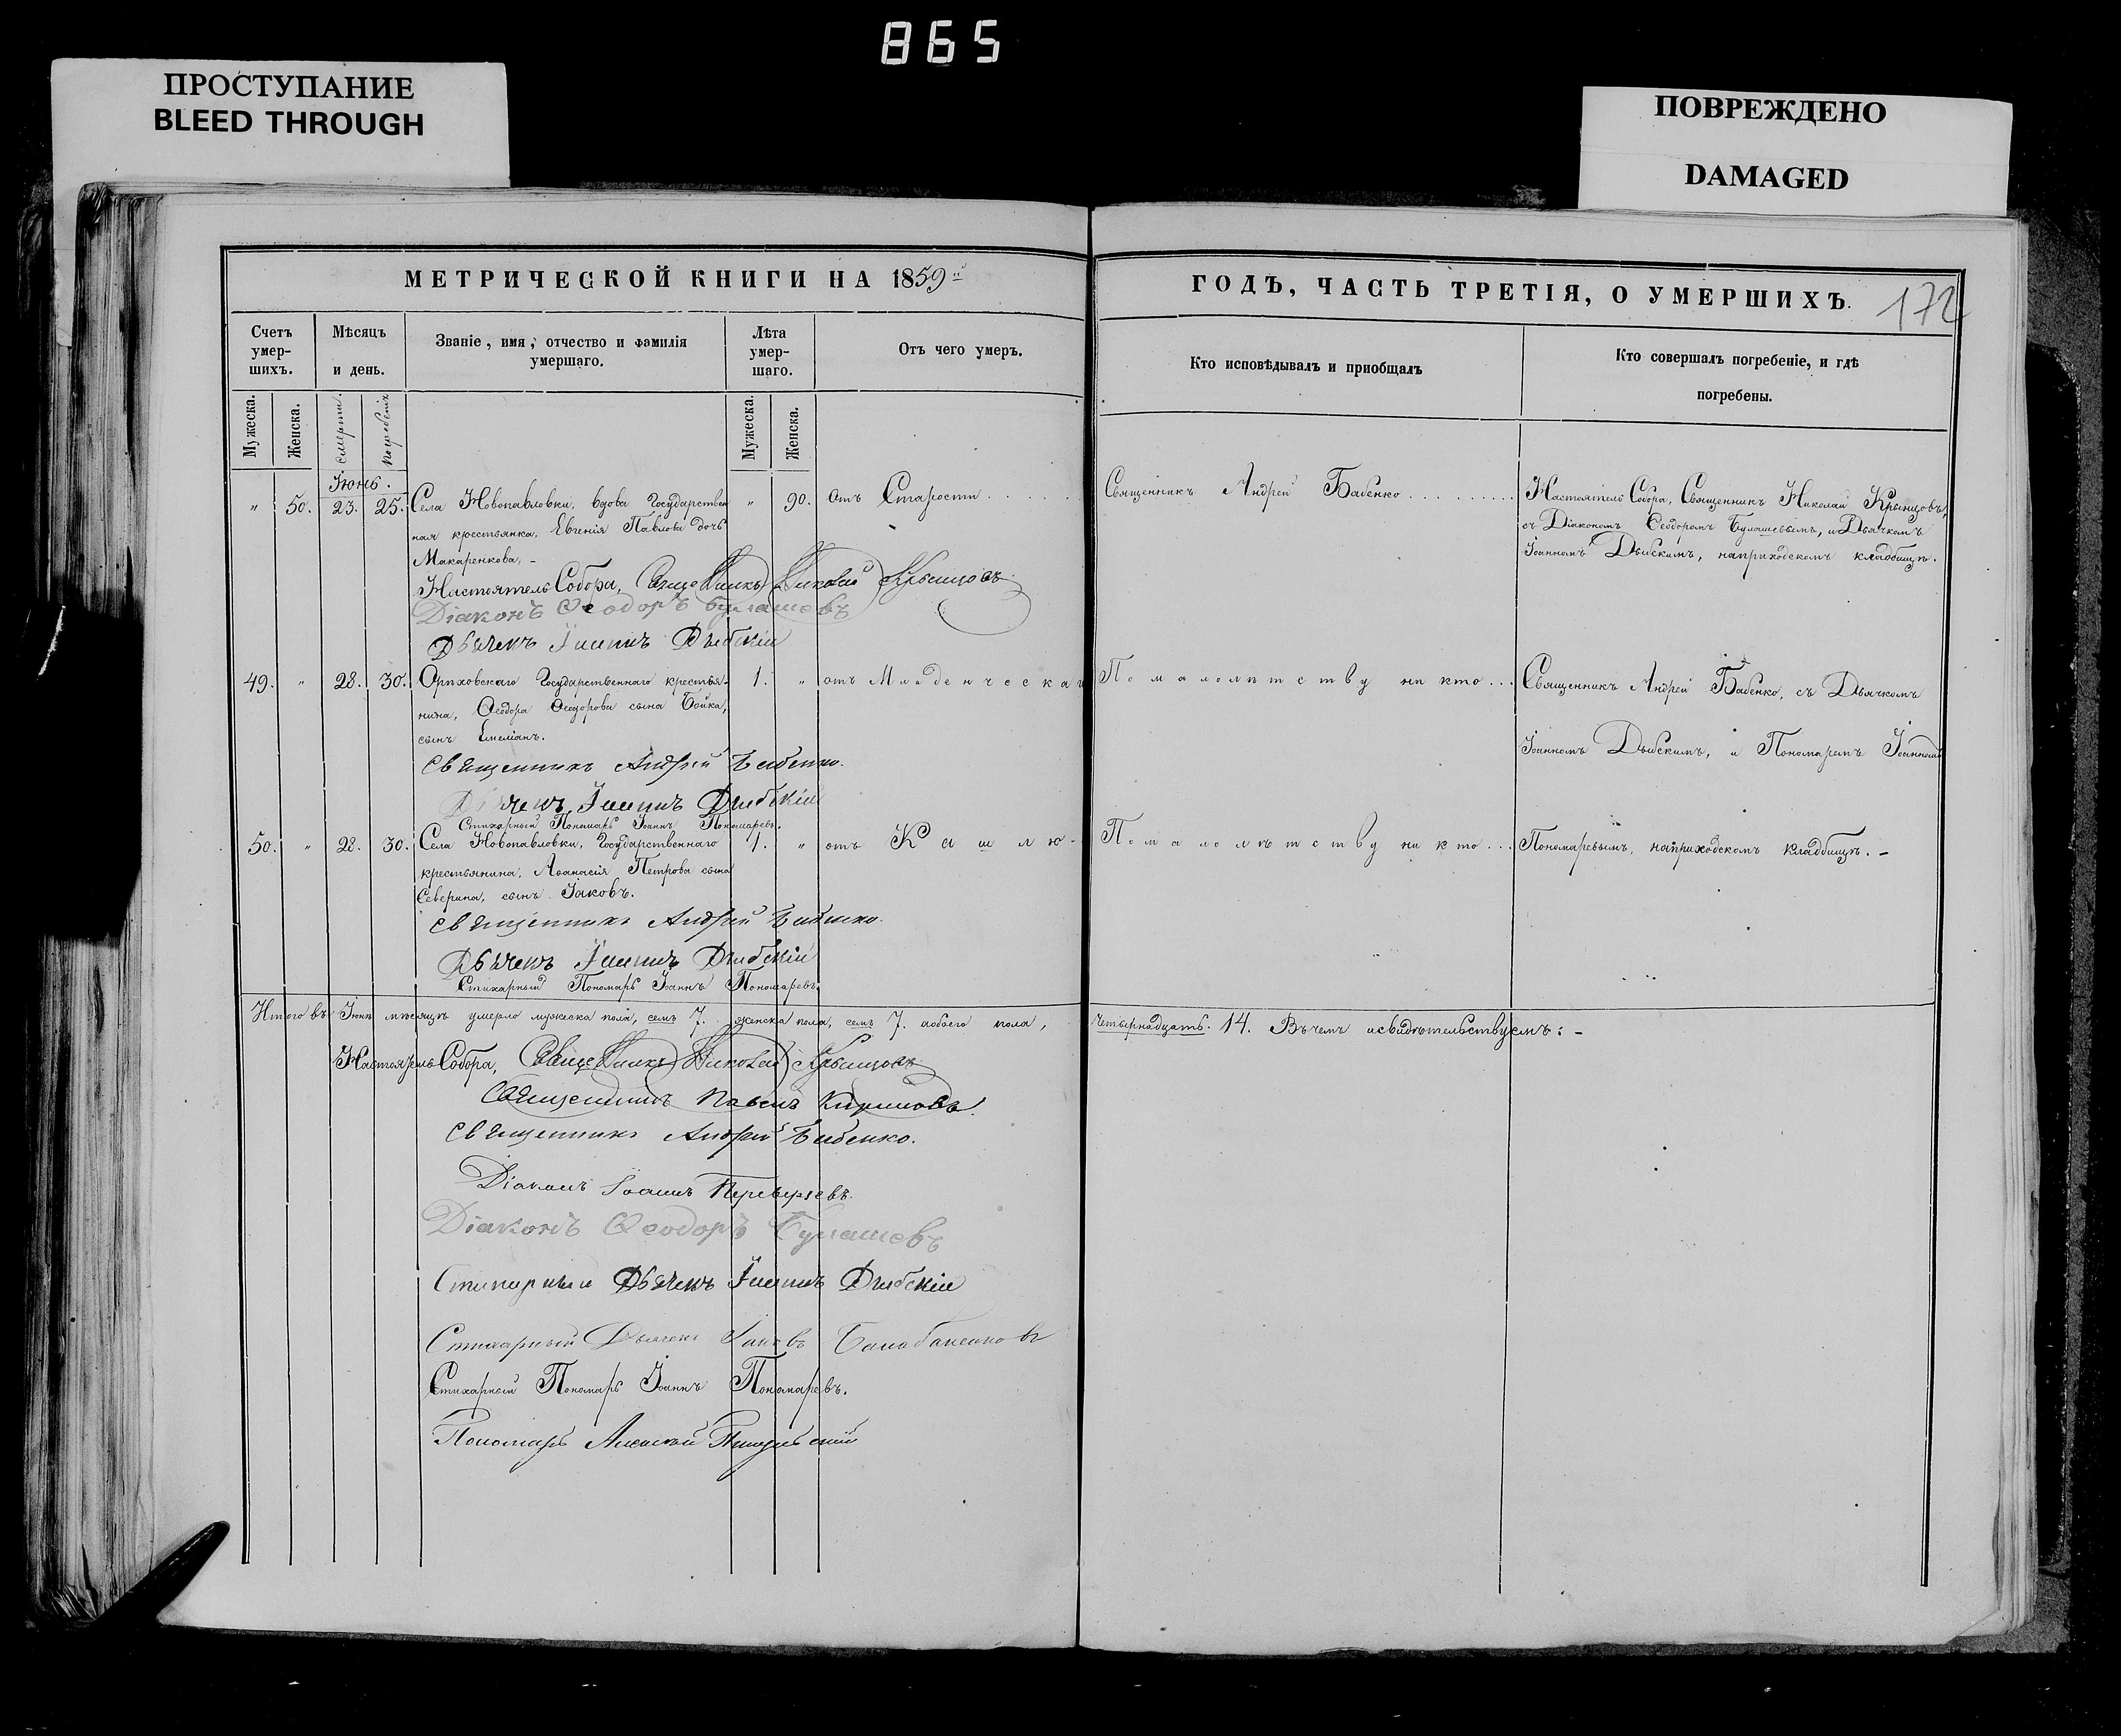 865
ПРОСТУПАНИЕ
BLEED THROUGH
ПОВРЕЖДЕНО
DAMAGED
МЕТРИЧЕСКОЙ КНИГИ НА 1859й
ГОДЪ, ЧАСТЬ ТРЕТІЯ, О УМЕРШИХЪ.
172
Счетъ умер-шихъ.
Мѣсяцъ и день.
Званіе, имя, отчество и фамилія умершаго.
Лѣта умер-шаго.
Отъ чего умеръ.
Кто исповѣдывалъ и пріобщалъ
Кто совершалъ погребеніе, и гдѣ погребены.
Мужеска.
Женска.
смерти.
погребенія
Мужеска.
Женска.
Іюнь.
" 50. 23. 25. Села Новопавловки, вдова Государствен " 90. Отъ Старости
ная крестьянка, Евгенія Павлова дочь
Макаренкова, -
Священникъ Андрей Бабенко
Настоятель Собора, Священникъ Николай Крынцовъ,
съ Діакономъ Ѳеодоромъ Булашевымъ, и Дьячкомъ
Іоанномъ Дыбскимъ, на приходскомъ кладбищѣ.
Настоятель Собора, Священникъ Николай Крынцовъ
Діаконъ Ѳеодоръ Булашевъ
Дьячекъ Іоаннъ Дыбскій
49. " 28. 30. Орѣховскаго Государственнаго крестья- 1. " отъ Младенческаго
нина, Ѳеодора Ѳеодорова сына Бойка,
сынъ Емеліанъ.
По малолѣтству ни кто
Священникъ Андрей Бабенко, съ Дьячкомъ
Іоанномъ Дыбскимъ, и Пономаремъ Іоанномъ
Священникъ Андрей Бабенко.
Дьячекъ Іоаннъ Дыбскій
Стихарный Пономарь Іоаннъ Пономаревъ.
50. " 28. 30. Села Новопавловки, Государственнаго 1. " отъ Кашлю-
крестьянина, Аѳанасія Петрова сына
Северина, сынъ Іаковъ.
По малолѣтству ни кто
Пономаревымъ, на приходскомъ кладбищѣ. -
Священникъ Андрей Бабенко.
Дьячекъ Іоаннъ Дыбскій
Стихарный Пономарь Іоаннъ Пономаревъ.
Итого въ Іюнѣ мѣсяцѣ умерло мужеска пола, семь 7. женска пола, семь 7. а обоего пола, четырнадцать. 14. Въ чемъ и свидѣтельствуемъ: -
Настоятель Собора, Священникъ Николай Крынцовъ
Священникъ Павелъ
Священникъ Андрей Бабенко.
Діаконъ Іоаннъ Переверзевъ.
Діаконъ Ѳеодоръ Булашевъ
Стихарный Дьячекъ Іоаннъ Дыбскій
Стихарный Дьячекъ Іаковъ
Стихарный Пономарь Іоаннъ Пономаревъ.
Пономарь Алексей